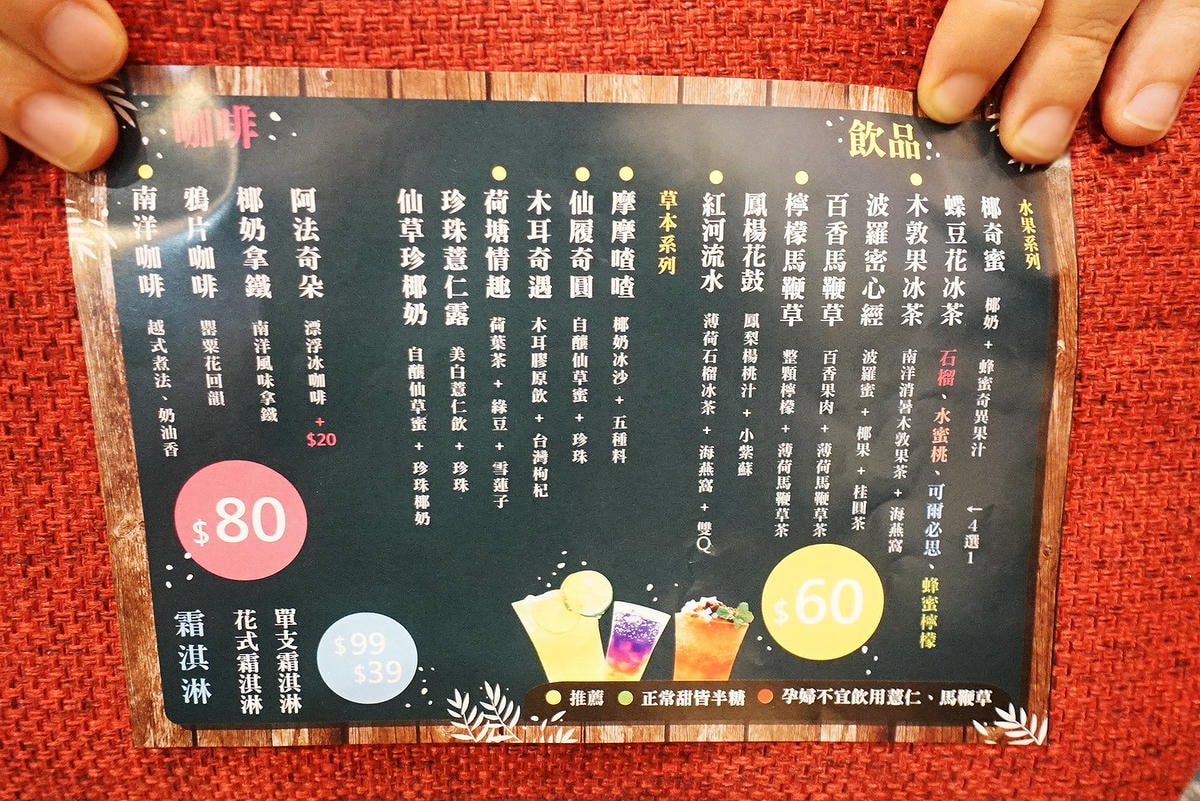 飲品
水果系列
椰奇蜜 椰奶 + 蜂蜜奇異果汁
蝶豆花冰茶 石榴、水蜜桃、可爾必思、蜂蜜檸檬
←4選1
木敦果冰茶 南洋消暑木敦果茶 + 海燕窩
波羅密心經 波羅蜜 + 椰果 + 桂圓茶
百香馬鞭草 百香果肉 + 薄荷馬鞭草茶
檸檬馬鞭草 整顆檸檬 + 薄荷馬鞭草茶
鳳楊花鼓 鳳梨楊桃汁 + 小紫蘇
紅河流水 薄荷石榴冰茶 + 海燕窩 + 雙Q
草本系列
摩摩喳喳 椰奶冰沙 + 五種料
仙履奇圓 自釀仙草蜜 + 珍珠
木耳奇遇 木耳膠原飲 + 台灣枸杞
荷塘情趣 荷葉茶 + 綠豆 + 雪蓮子
珍珠薏仁露 美白薏仁飲 + 珍珠
仙草珍椰奶 自釀仙草蜜 + 珍珠椰奶
$60
咖啡
阿法奇朵 漂浮冰咖啡 +$20
椰奶拿鐵 南洋風味拿鐵
鴉片咖啡 罌粟花回韻
南洋咖啡 越式煮法、奶油香
$80
霜淇淋
花式霜淇淋 $99
單支霜淇淋 $39
推薦 正常甜皆半糖 孕婦不宜飲用薏仁、馬鞭草